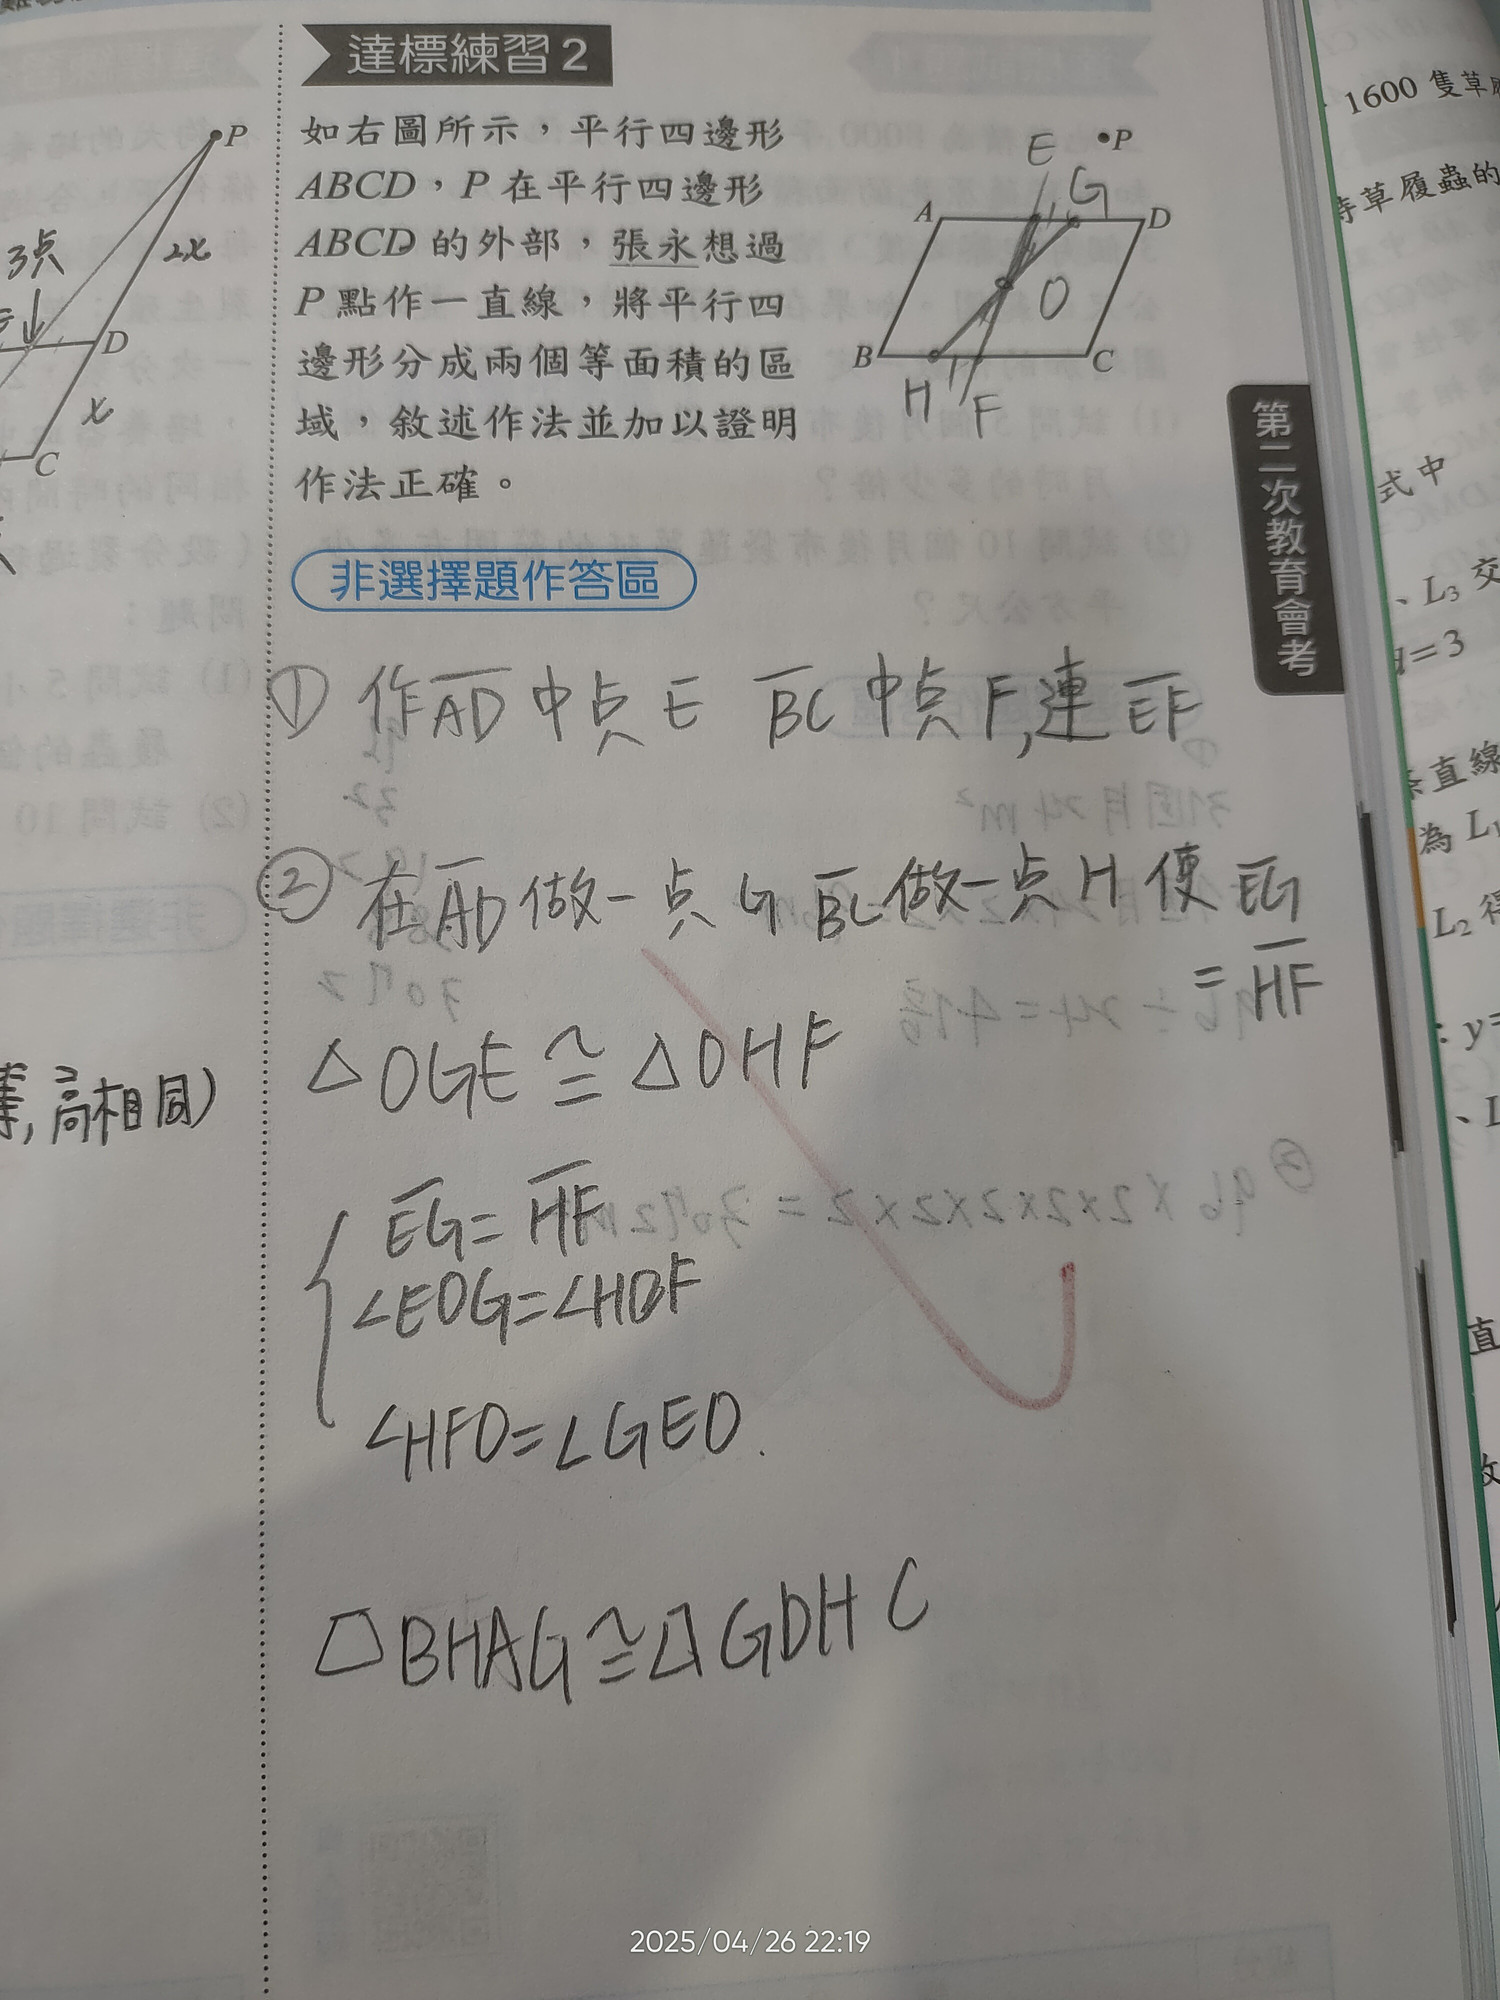 達標練習2
如右圖所示，平行四邊形
ABCD，P 在平行四邊形
ABCD 的外部，張永想過
P 點作一直線，將平行四
邊形分成兩個等面積的區
域，敘述作法並加以證明
作法正確。
E
P
G
A
D
O
B
C
H
F
非選擇題作答區
① 作AD中点E BC中点F,連EF
② 在AD做一点G BC做一点H使EG
=HF
△OGE≅△OHF
EG=HF
∠EOG=∠HOF
∠HFO=∠GEO.
BHAG≅GDHC
P
3点
2x
D
x
C
,高相同)
第二次教育會考
1600 隻草
草履蟲的
式中
、L₃ 交
=3
直線
為 L
L₂ 得
: y=
、L
直
2025/04/26 22:19